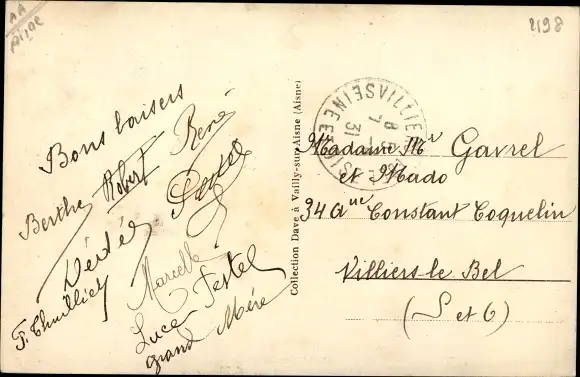 AA
Aisne
4198
Bons baisers
Berthe Robert René
Désiré
F. Thuillier
Marcelle
Luce Festel
grand Mère
Collection Dave à Vailly-sur-Aisne (Aisne)
VILLIE
SEINE ET
8-7
31
Madame Mr Gavrel
et Mado
34 Aue Constant Coquelin
Villiers-le Bel
(S et O)